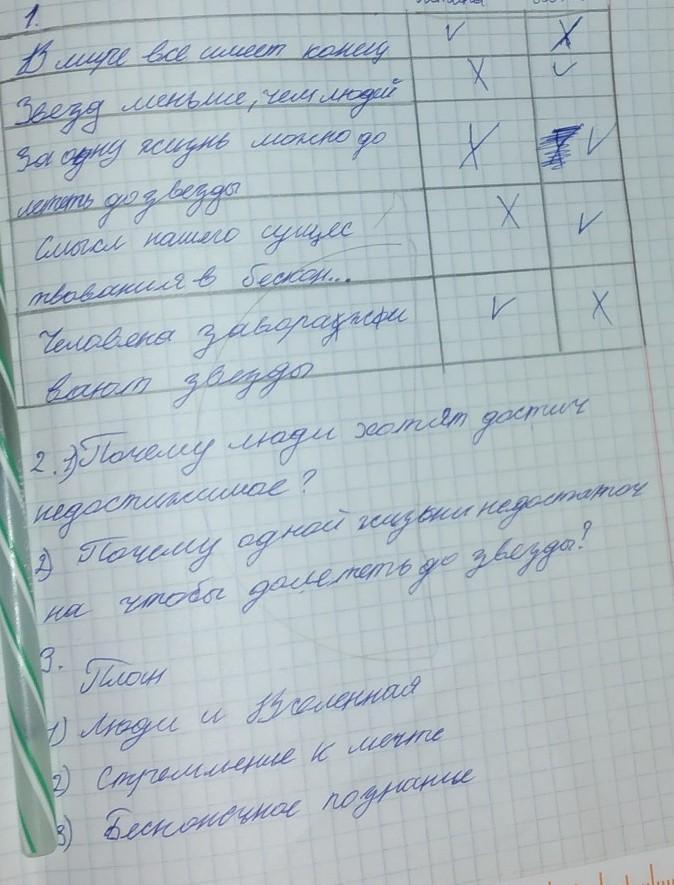 1.
В мире все имеет конец V X
Звезд меньше, чем людей X V
За одну жизнь можно до X V
лететь до звезды
Смысл нашего сущес X V
твования в бескон...
Человека заворажи V X
вают звезды
2. 1) Почему люди хотят достич
недостижимое?
2) Почему одной жизни недостаточ
на чтобы долететь до звезды?
3. План
1) Люди и Вселенная
2) Стремление к мечте
3) Бесконечное познание